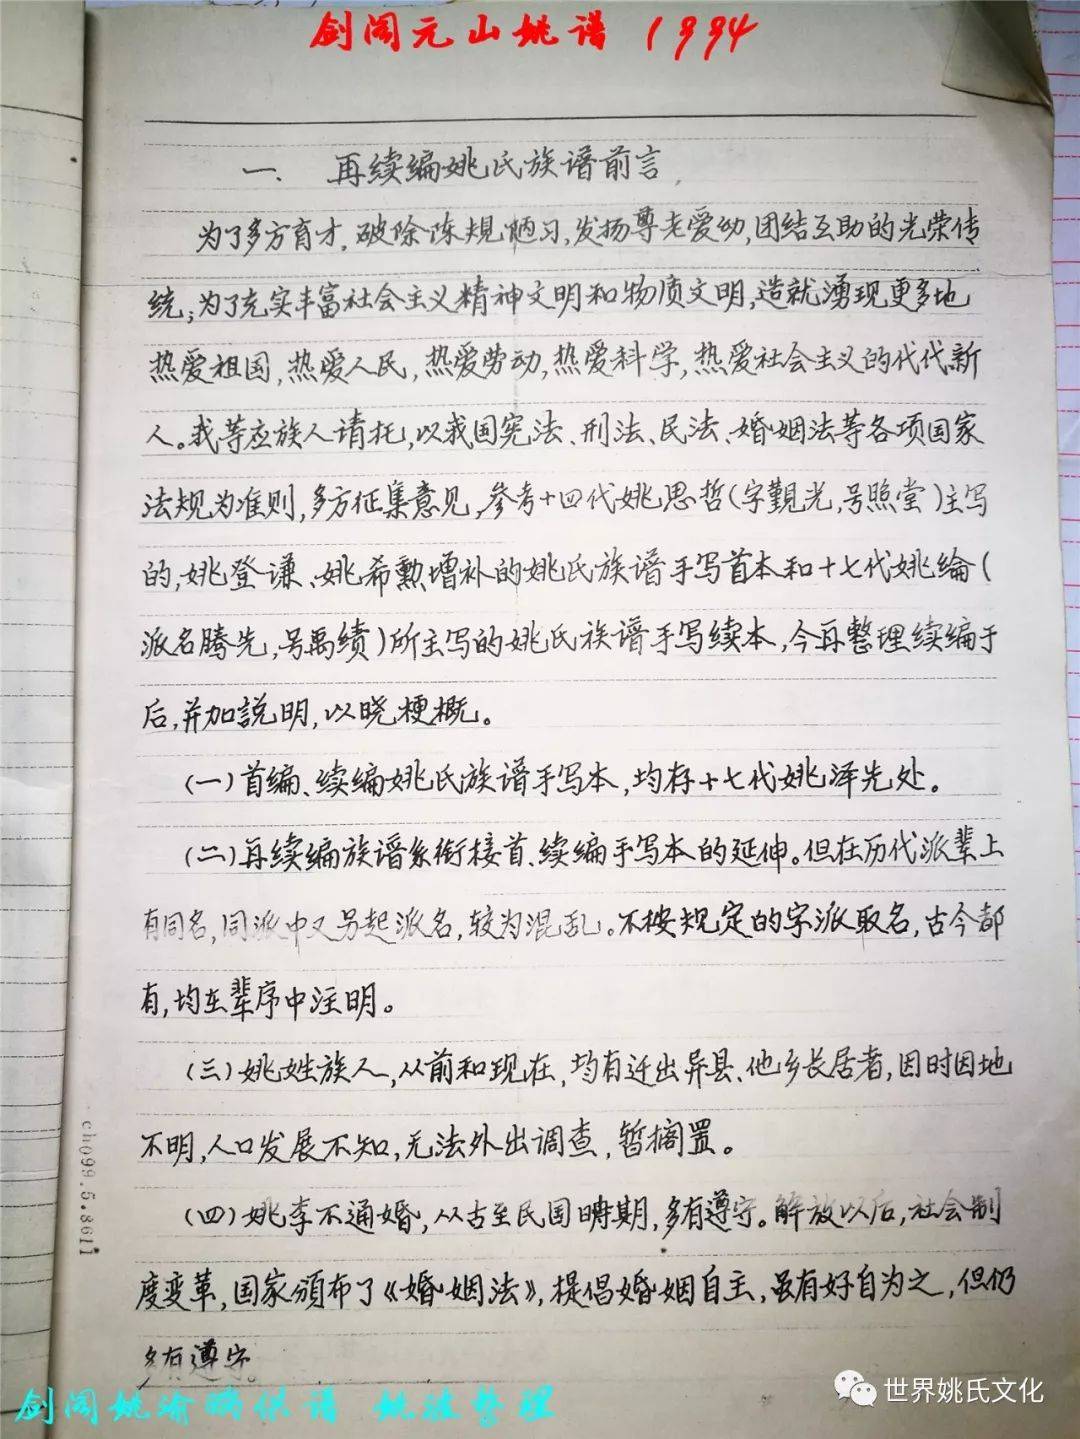 剑阁元山姚谱 1994
一、 再续编姚氏族谱前言
为了多方育才,破除陈规陋习,发扬尊老爱幼,团结互助的光荣传
统;为了充实丰富社会主义精神文明和物质文明,造就湧现更多地
热爱祖国,热爱人民,热爱劳动,热爱科学,热爱社会主义的代代新
人。我等应族人请托,以我国宪法、刑法、民法、婚姻法等各项国家
法规为准则,多方征集意见,参考十四代姚思哲(字觐光,号照堂)主写
的,姚登谦、姚希勲增补的姚氏族谱手写首本和十七代姚綸(
派名腾先,号禹绩)所主写的姚氏族谱手写续本,今再整理续编于
后,并加説明,以晓梗概。
(一)首编、续编姚氏族谱手写本,均存十七代姚泽先处。
(二)再续编族谱系衔接首、续编手写本的延伸。但在历代派辈上
有同名,同派中又另起派名,较为混乱。不按规定的字派取名,古今都
有,均在辈序中注明。
(三)姚姓族人,从前和现在,均有迁出异县、他乡长居者,因时因地
不明,人口发展不知,无法外出调查,暂搁置。
(四)姚李不通婚,从古至民国時期,多有遵守。解放以后,社会制
度变革,国家頒布了《婚姻法》,提倡婚姻自主,虽有好自为之,但仍
多有遵守。
cho99.5.861]
剑阁姚渝鹏供谱 姚波整理
世界姚氏文化